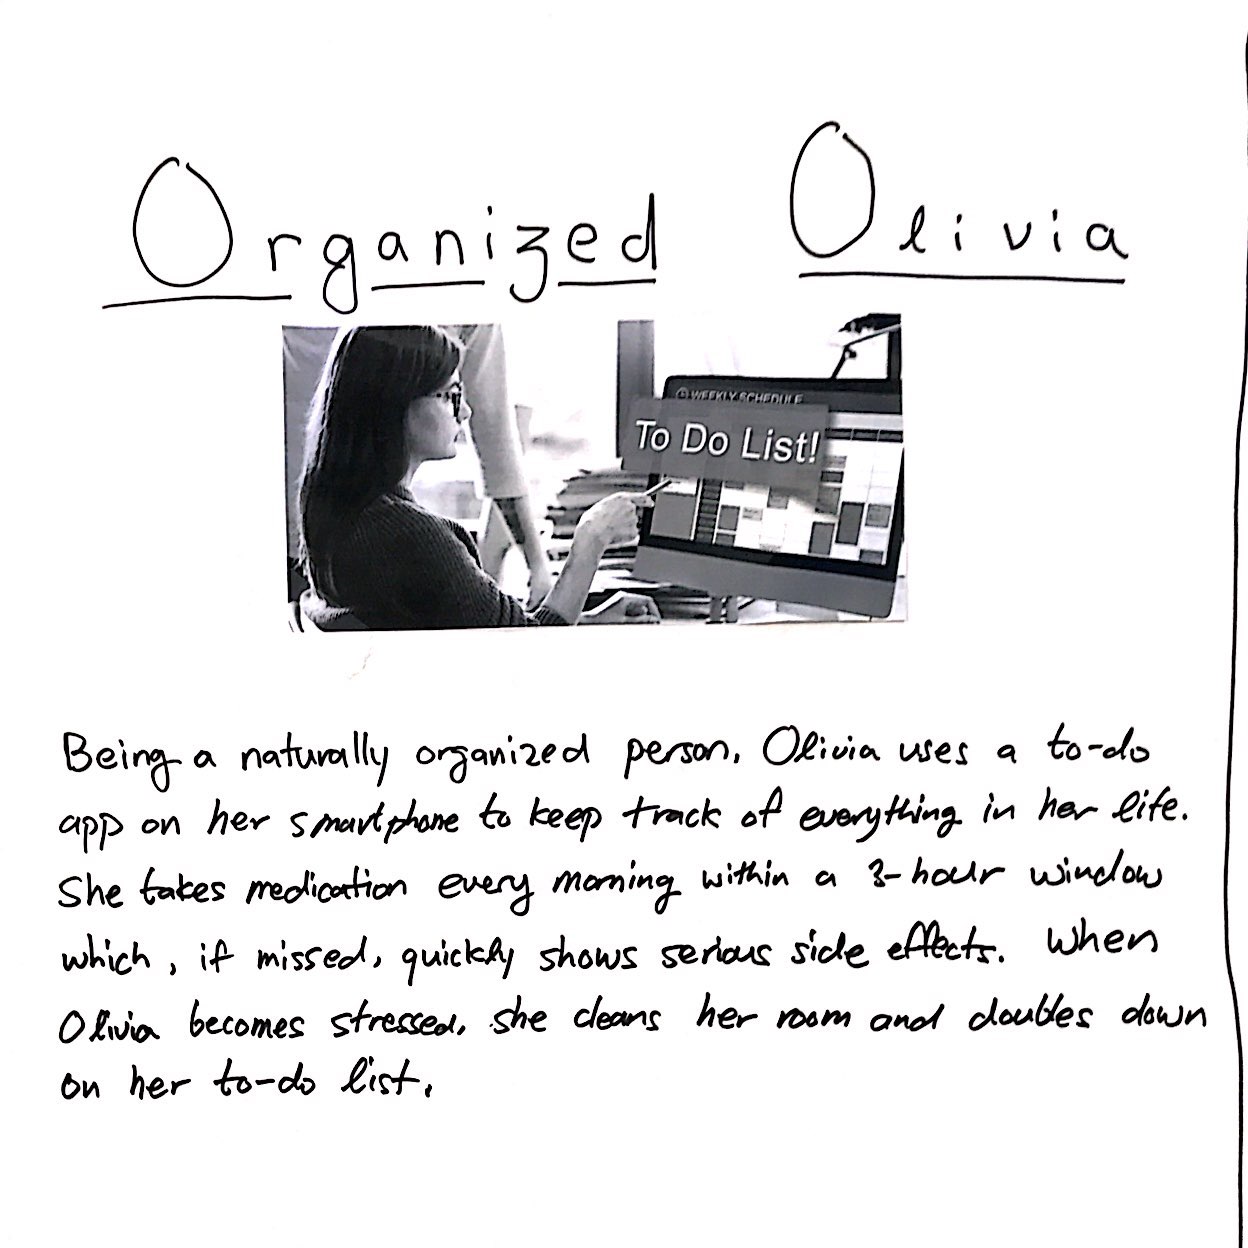 Organized Olivia
WEEKLY SCHEDULE
To Do List!
Being a naturally organized person, Olivia uses a to-do
app on her smartphone to keep track of everything in her life.
She takes medication every morning within a 3-hour window
which, if missed, quickly shows serious side effects. When
Olivia becomes stressed, she cleans her room and doubles down
on her to-do list.